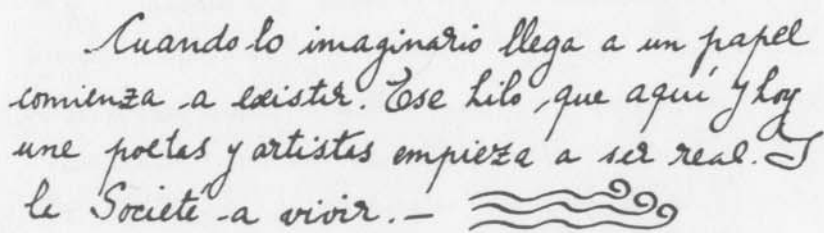 Cuando lo imaginario llega a un papel
comienza a existir. Ese hilo, que aquí y hoy
une poetas y artistas empieza a ser real. Y
le Societé a vivir. —